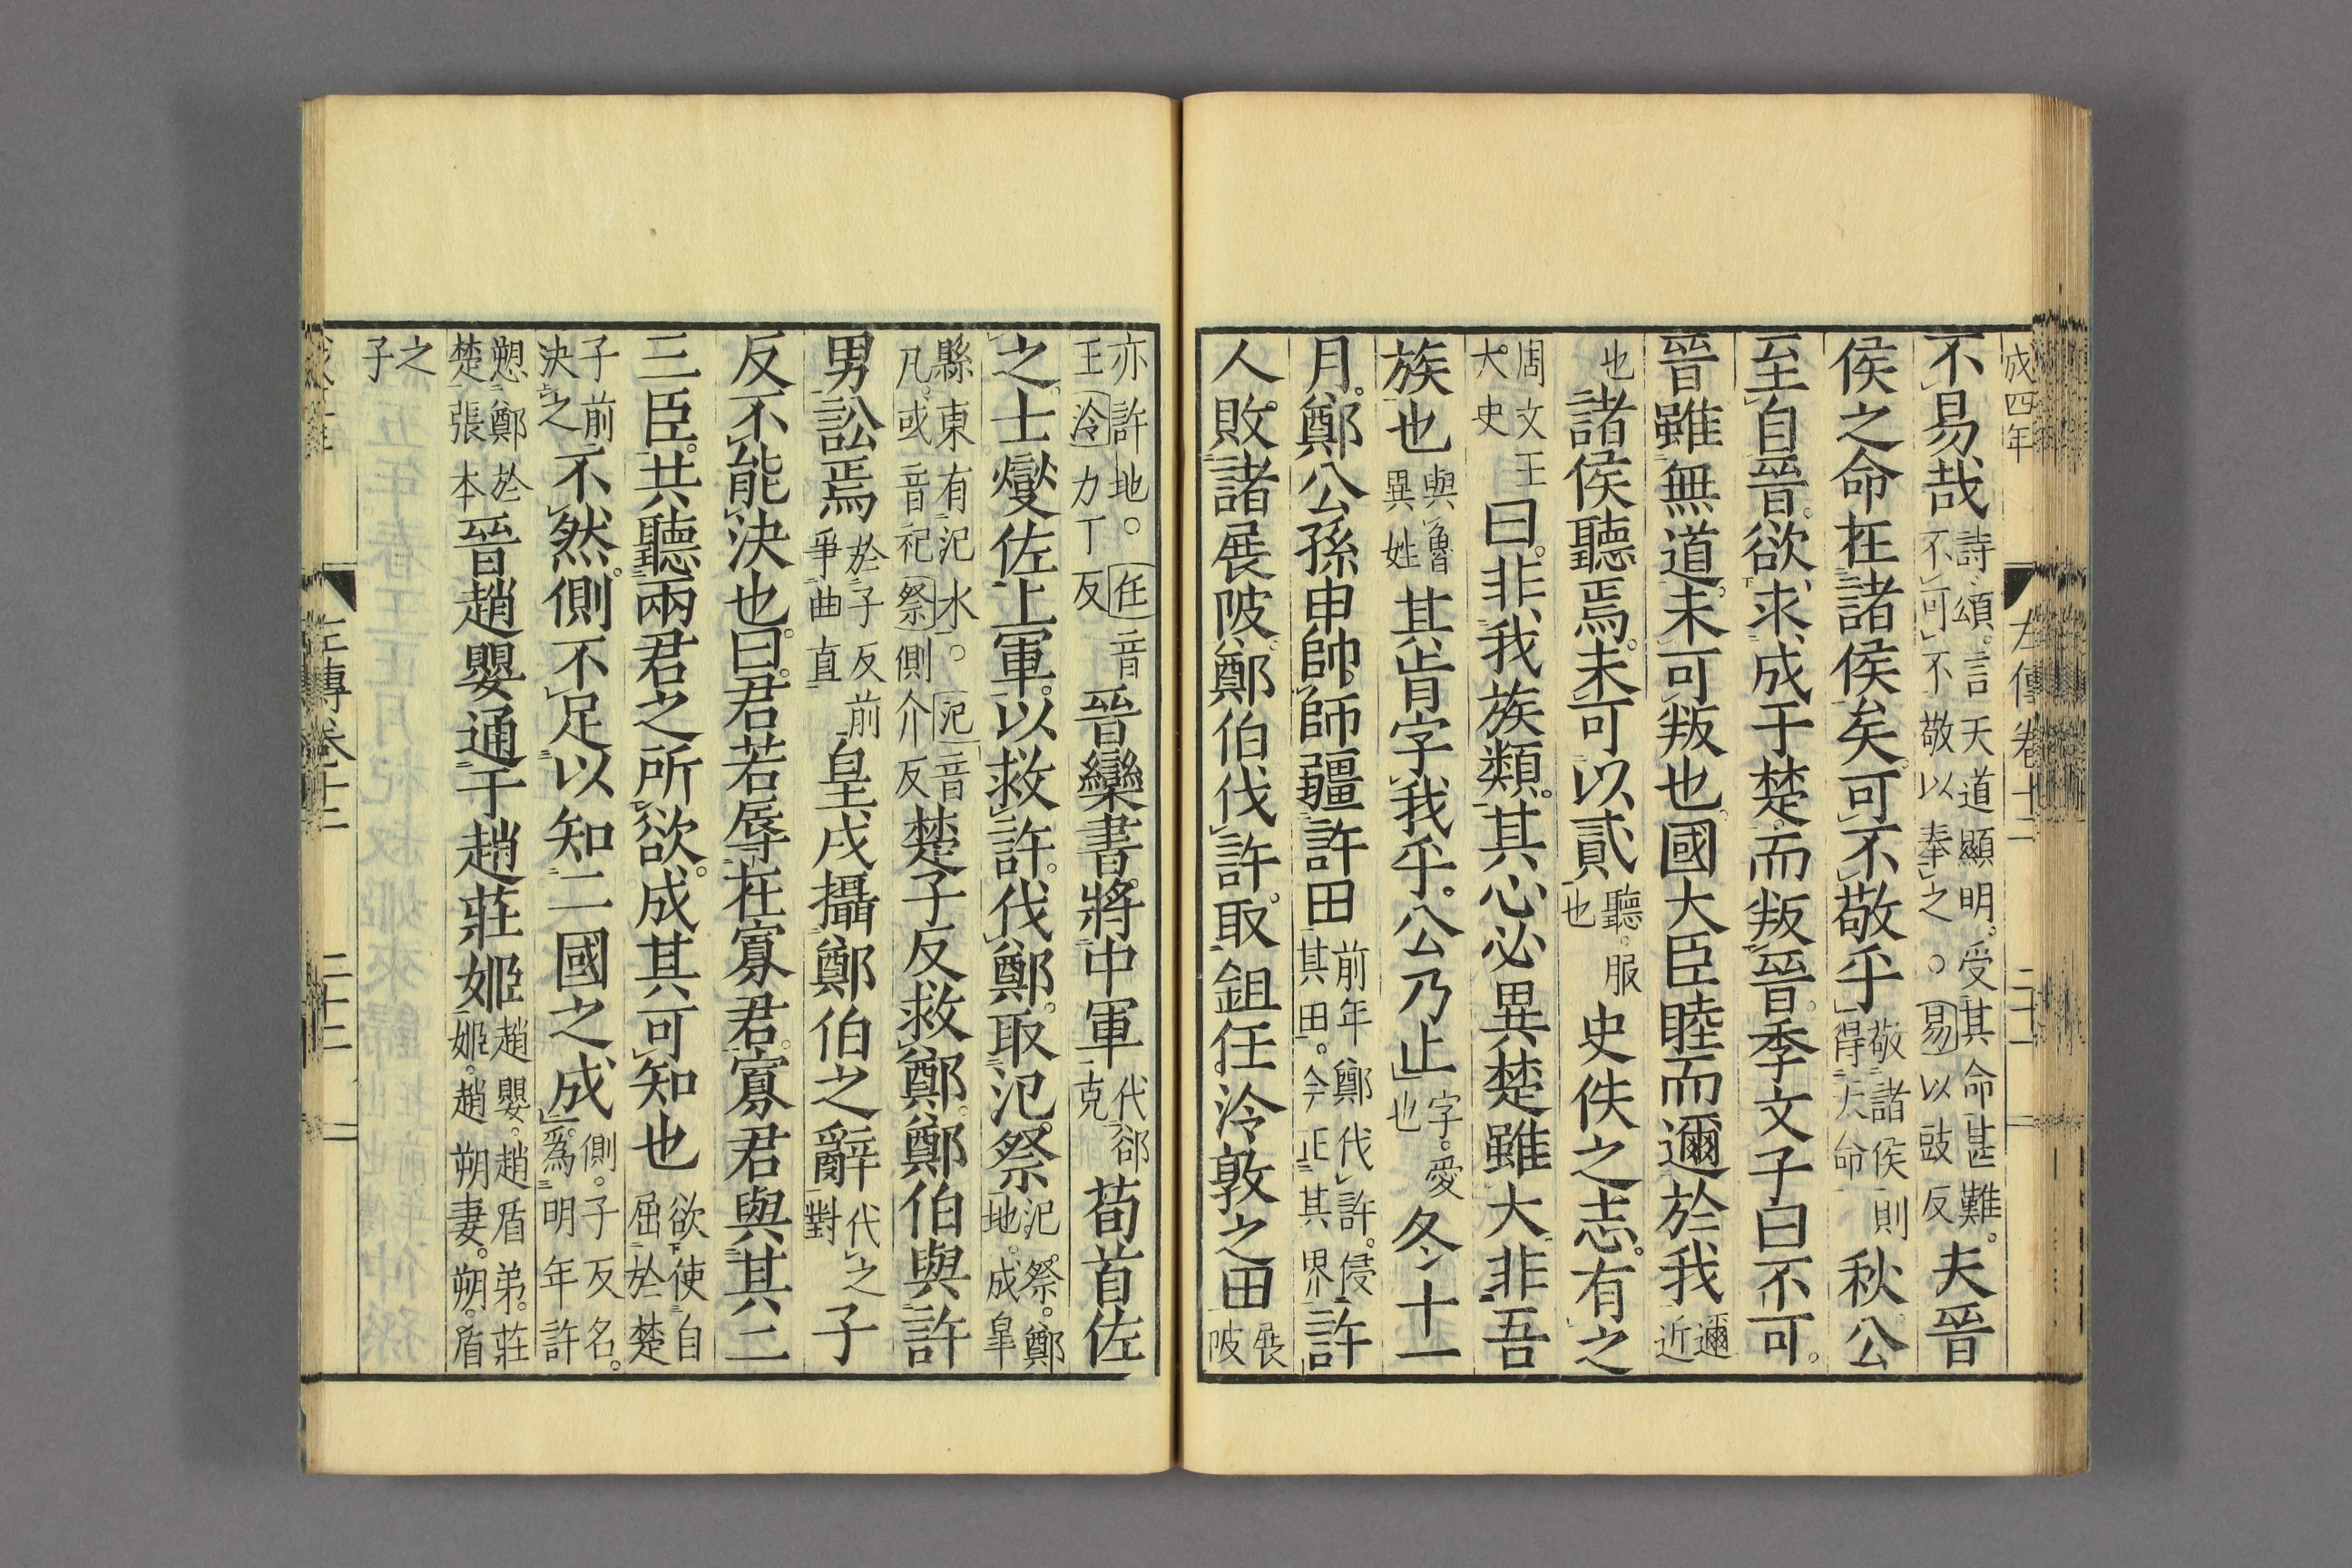 成四年　左傳卷十二　二十一
不易哉詩頌。言天道顯明。受其命甚難。不可不敬以奉之。○易以豉反夫晉
侯之命在諸侯矣。可不敬乎敬諸侯則得天命秋公
至自晉。欲求成于楚。而叛晉。季文子曰不可。
晉雖無道。未可叛也。國大臣睦而邇於我邇近
也諸侯聽焉。未可以貳聽。服也史佚之志。有之
周文王大史曰。非我族類。其心必異楚雖大非吾
族也與魯異姓其肯字我乎。公乃止字。愛也冬十一
月。鄭公孫申帥師疆許田前年鄭伐許。侵其田。今正其界許
人敗諸展陂。鄭伯伐許。取鉏任泠敦之田展陂
亦許地。○任音壬泠力丁反晉欒書。將中軍代郤克荀首佐
之。士燮佐上軍。以救許。伐鄭。取氾。祭氾。祭。鄭地。成皐
縣東有氾水。○氾音凡。或音祀祭側介反楚子反救鄭。鄭伯與許
男訟焉於子反前爭曲直皇戌攝鄭伯之辭代之對子
反不能決也。曰。君若辱在寡君。寡君與其二
三臣。共聽兩君之所欲。成其可知也欲使自屈於楚
子前決之不然。側不足以知二國之成。側。子反名。爲明年許
愬鄭於楚張本晉趙嬰通于趙莊姬趙嬰。趙盾弟。莊姬。趙朔妻。朔。盾
之子
左傳卷十二　二十二